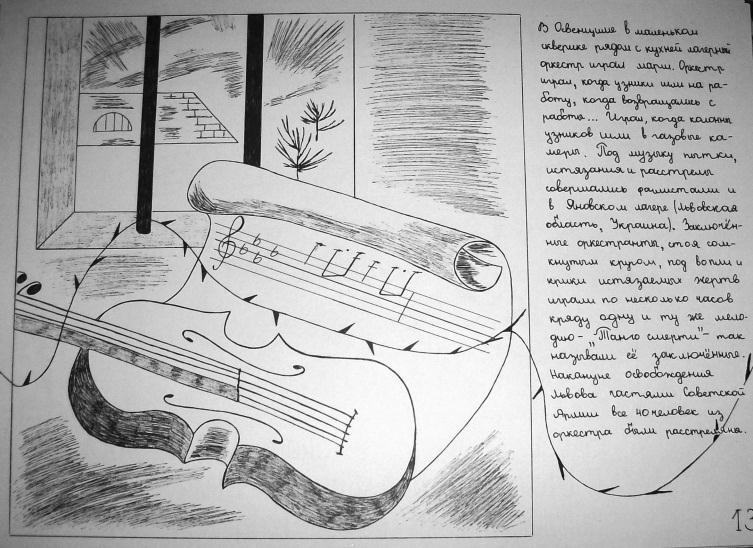 В Освенциме в маленьком
скверике рядом с кухней лагерный
оркестр играл марш. Оркестр
играл, когда узники шли на ра-
боту, когда возвращались с
работы... Играл, когда колонны
узников шли в газовые ка-
меры. Под музыку пытки,
истязания и расстрелы
совершались фашистами и
в Яновском лагере (Львовская
область, Украина). Заключён-
ные оркестранты, стоя сом-
кнутым кругом, под вопли и
крики истязаемых жертв
играли по несколько часов
кряду одну и ту же мело-
дию - „Танго смерти" - так
называли её заключённые.
Накануне освобождения
Львова частями Советской
Армии все 40 человек из
оркестра были расстреляны.
13